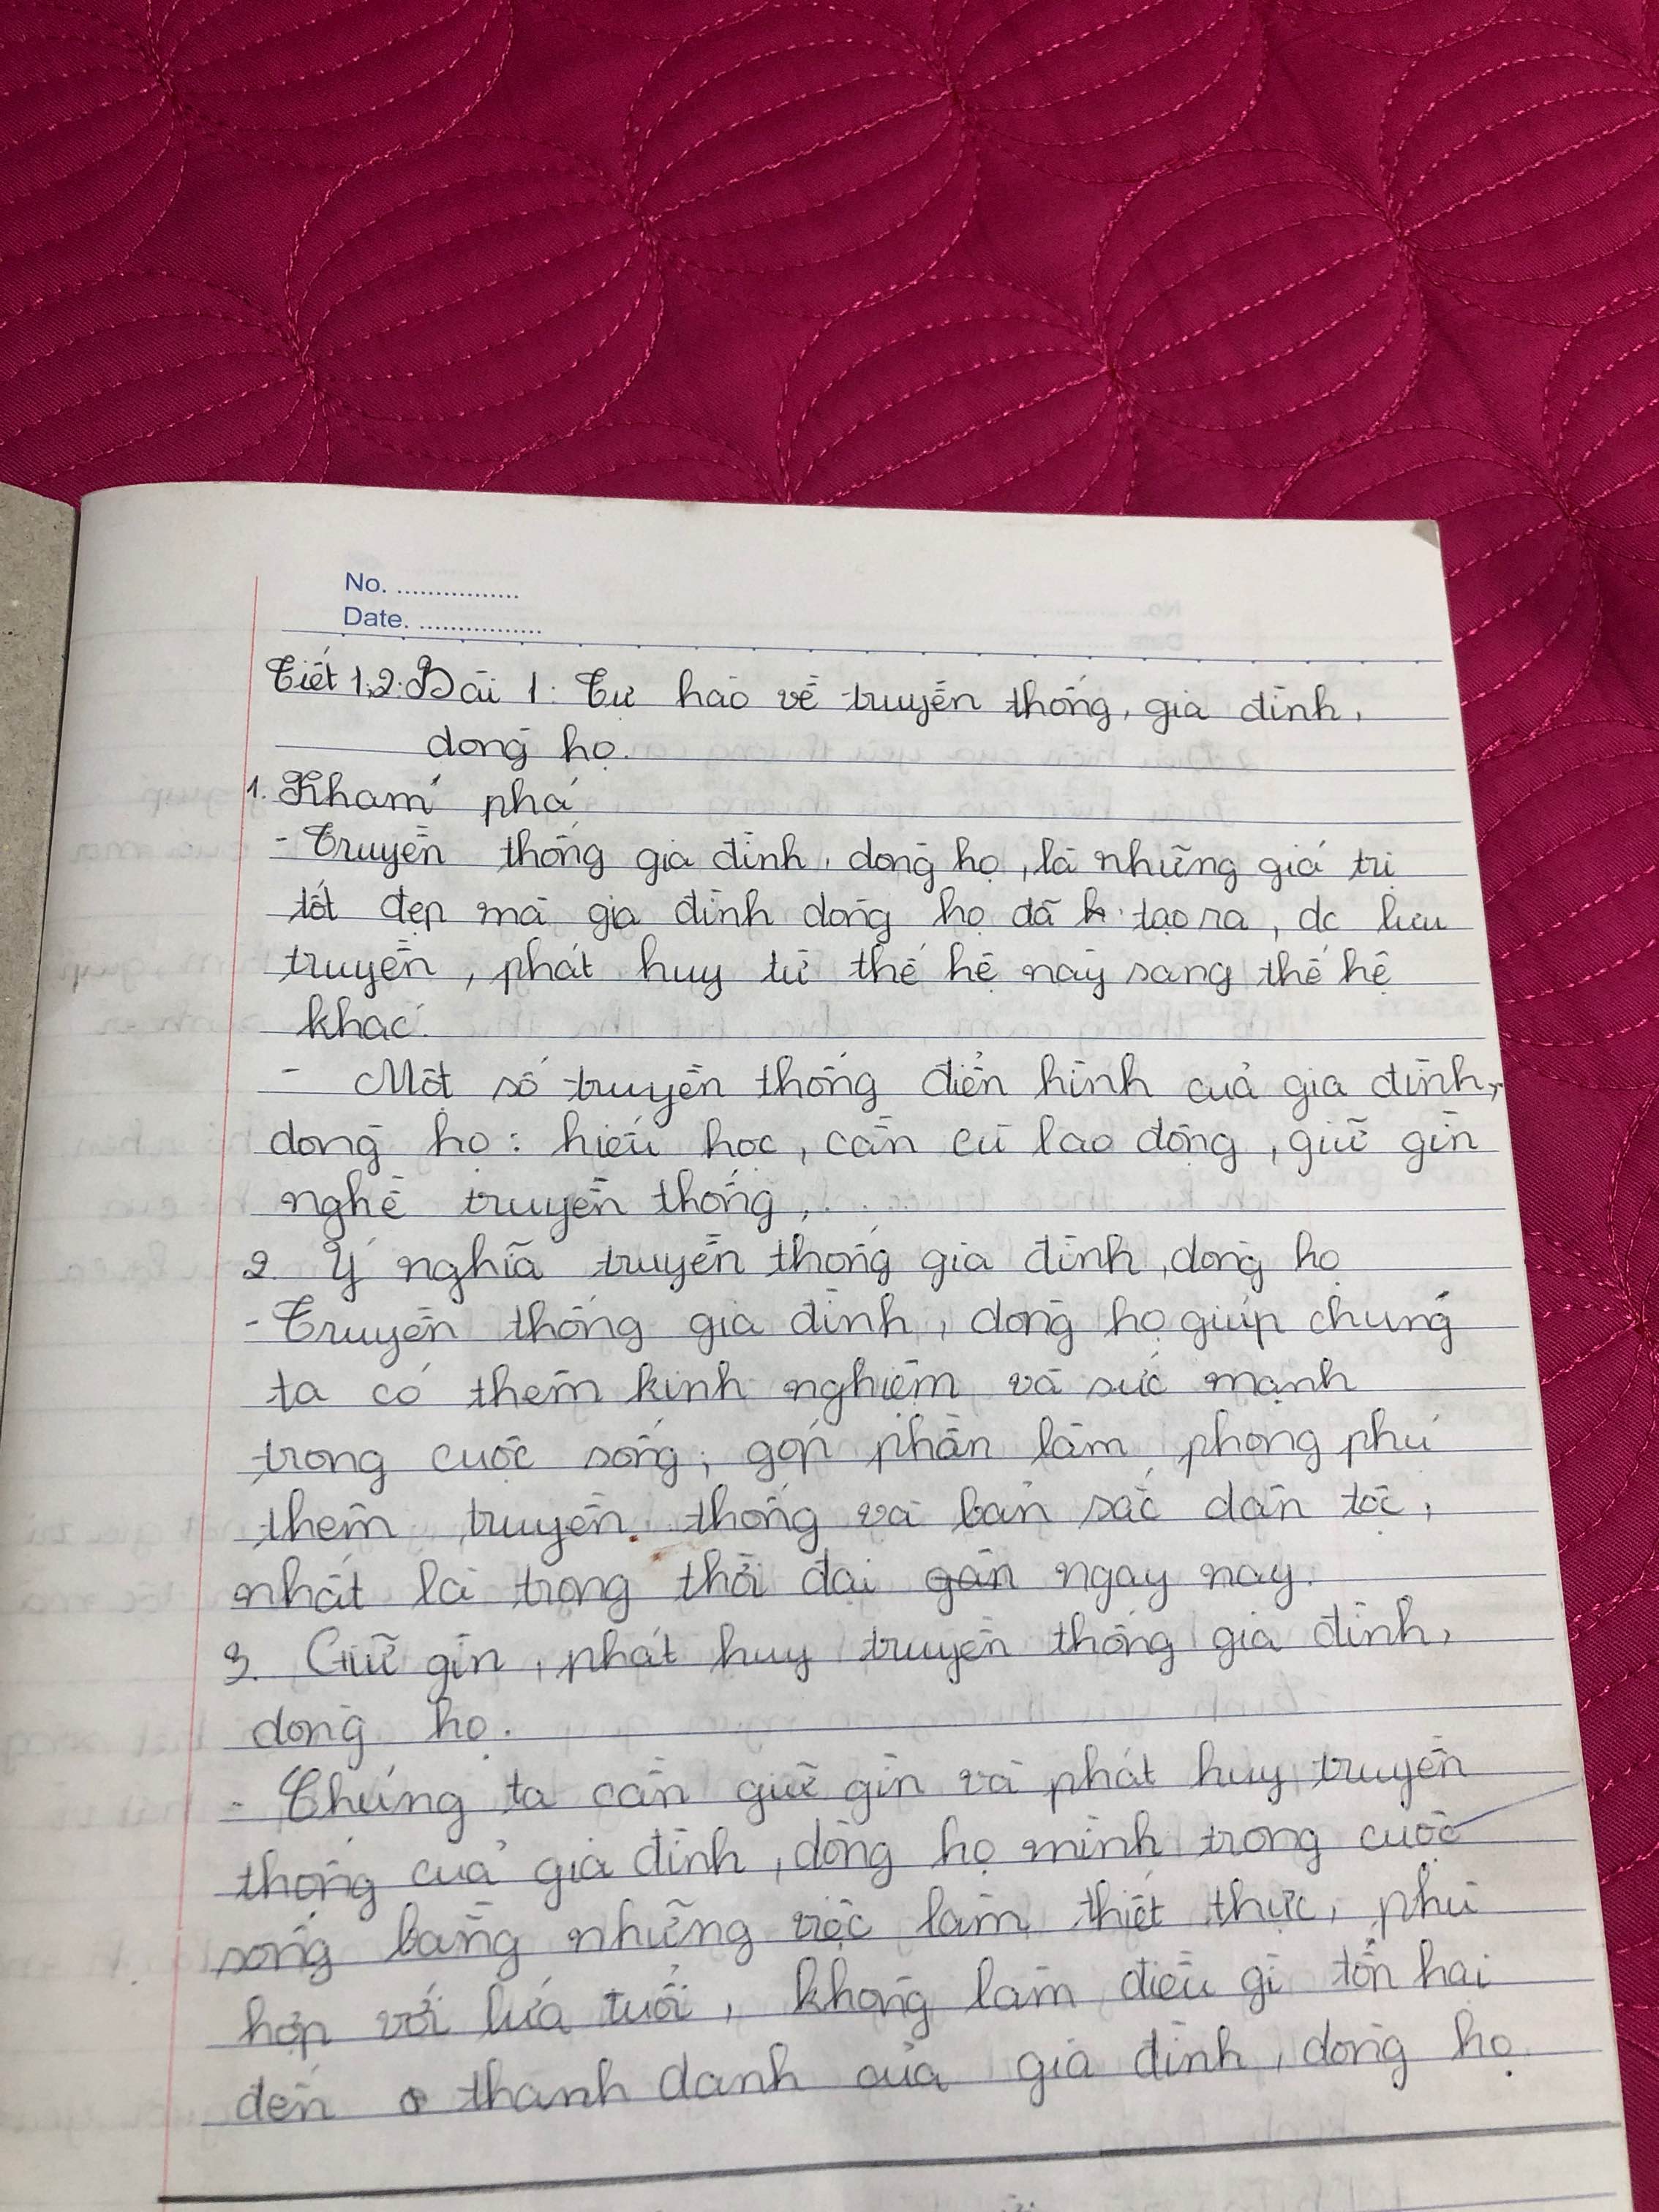 No. ................
Date. ................
Tiết 1,2: Bài 1: Tự hào về truyền thống, gia đình,
dòng họ.
1. Khám phá
- Truyền thống gia đình, dòng họ, là những giá trị
tốt đẹp mà gia đình dòng họ đã tạo ra, dc lưu
truyền, phát huy từ thế hệ này sang thế hệ
khác.
- Một số truyền thống điển hình của gia đình,
dòng họ: hiếu học, cần cù lao động, giữ gìn
nghề truyền thống, ...
2. Ý nghĩa truyền thống gia đình, dòng họ
- Truyền thống gia đình, dòng họ giúp chúng
ta có thêm kinh nghiệm và sức mạnh
trong cuộc sống, góp phần làm phong phú
thêm truyền thống và bản sắc dân tộc,
nhất là trong thời đại gần ngày nay.
3. Giữ gìn, phát huy truyền thống gia đình,
dòng họ.
- Chúng ta cần giữ gìn và phát huy truyền
thống của gia đình, dòng họ mình trong cuộc
sống bằng những việc làm thiết thực, phù
hợp với lứa tuổi, không làm điều gì tổn hại
đến thanh danh của gia đình, dòng họ.